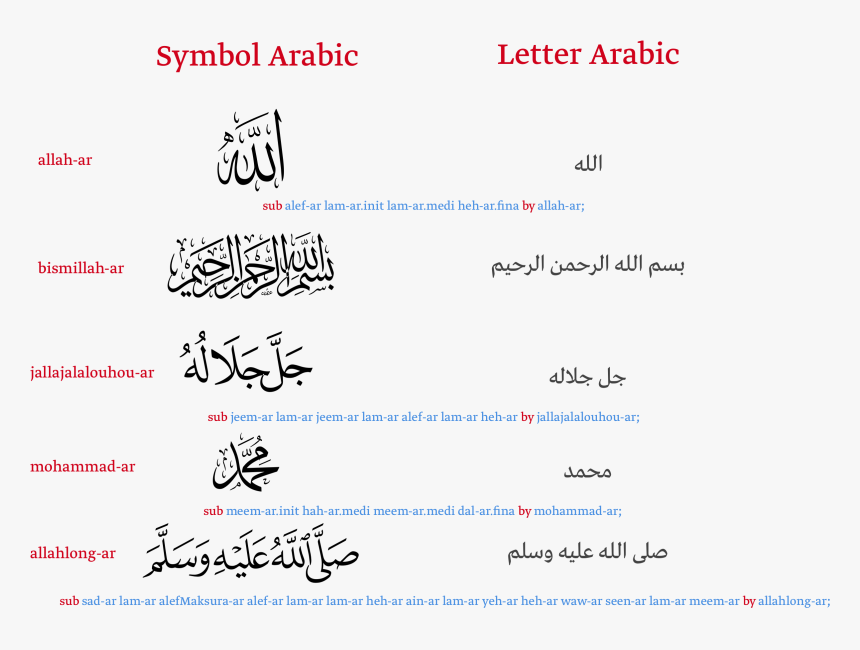 Symbol Arabic Letter Arabic
allah-ar الله الله
sub alef-ar lam-ar.init lam-ar.medi heh-ar.fina by allah-ar;
bismillah-ar بسم الله الرحمن الرحيم بسم الله الرحمن الرحيم
jallajalalouhou-ar جَلَّ جَلَالُهُ جل جلاله
sub jeem-ar lam-ar jeem-ar lam-ar alef-ar lam-ar heh-ar by jallajalalouhou-ar;
mohammad-ar محمد محمد
sub meem-ar.init hah-ar.medi meem-ar.medi dal-ar.fina by mohammad-ar;
allahlong-ar صَلَّى اللَّهُ عَلَيْهِ وَسَلَّمَ صلى الله عليه وسلم
sub sad-ar lam-ar alefMaksura-ar alef-ar lam-ar lam-ar heh-ar ain-ar lam-ar yeh-ar heh-ar waw-ar seen-ar lam-ar meem-ar by allahlong-ar;